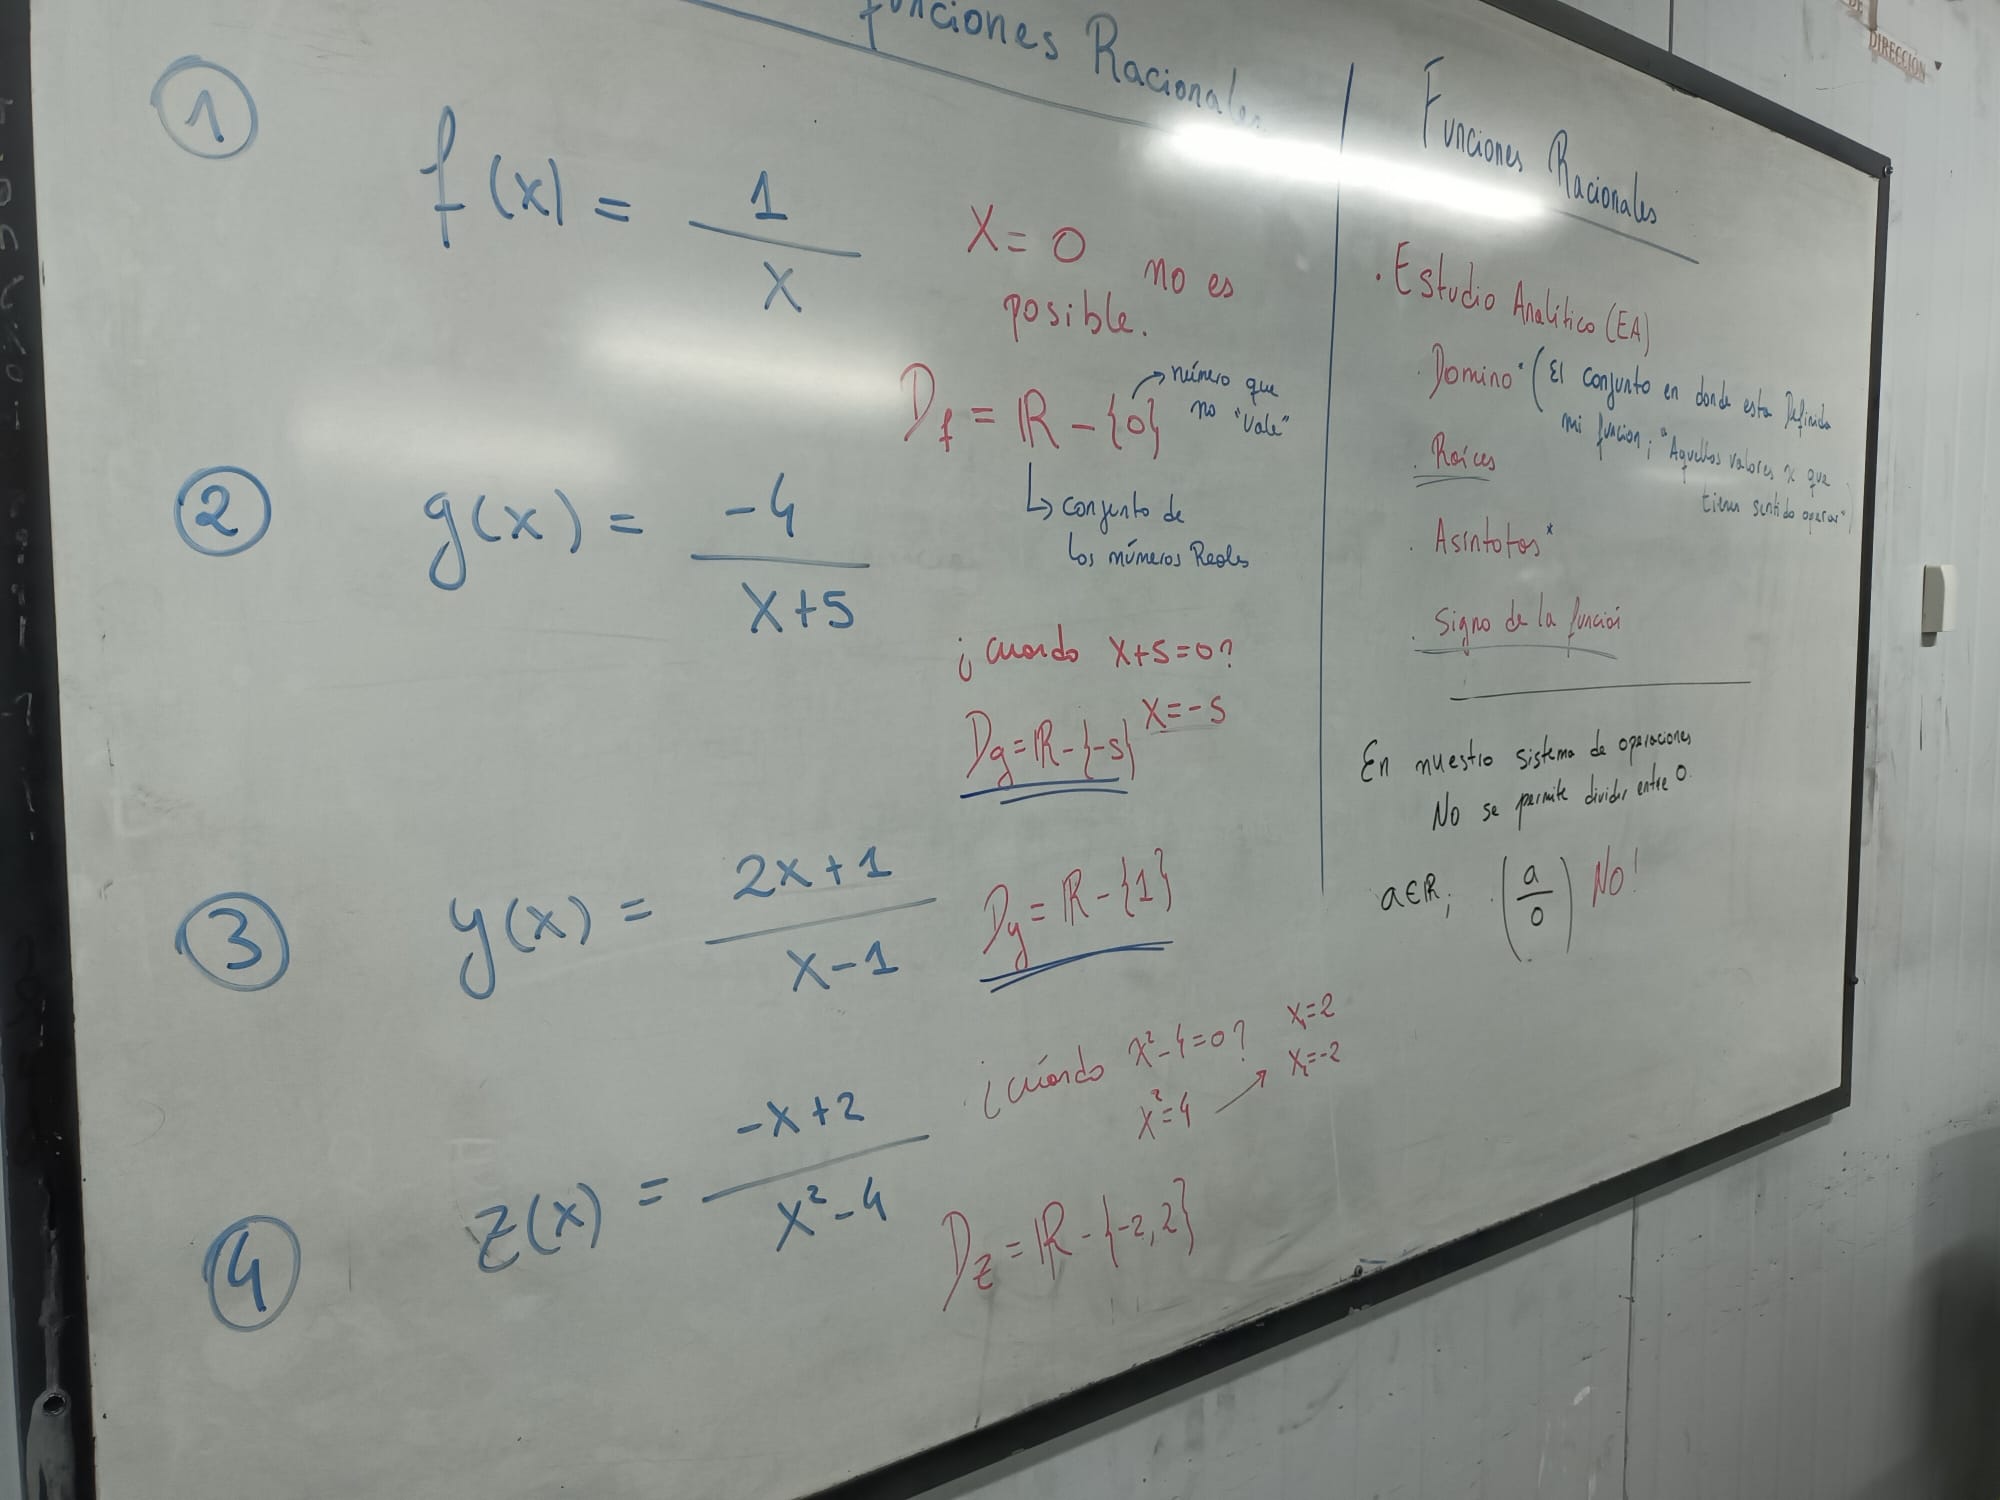 Funciones Racionales
1
f(x) = 1/x
X = 0 no es
posible.
Df = ℝ - {0}
número que
no "vale"
↳ conjunto de
los números Reales
2
g(x) = -4/(x+5)
¿cuando x+5=0?
x=-5
Dg=ℝ-{-5}
3
y(x) = (2x+1)/(x-1)
Dy=ℝ-{1}
4
z(x) = (-x+2)/(x²-4)
¿cuándo x²-4=0?
x²=4 → x₁=2
x₂=-2
Dz = ℝ - {-2,2}
Funciones Racionales
· Estudio Analítico (EA)
· Domino* (El conjunto en donde esta Definida
mi funcion; "Aquellos valores x que
tienen sentido operar")
· Raíces
· Asíntotas*
· Signo de la función
En nuestro sistema de operaciones
No se permite dividir entre 0.
a∈ℝ; (a/0) NO!
DE
DIRECCIÓN